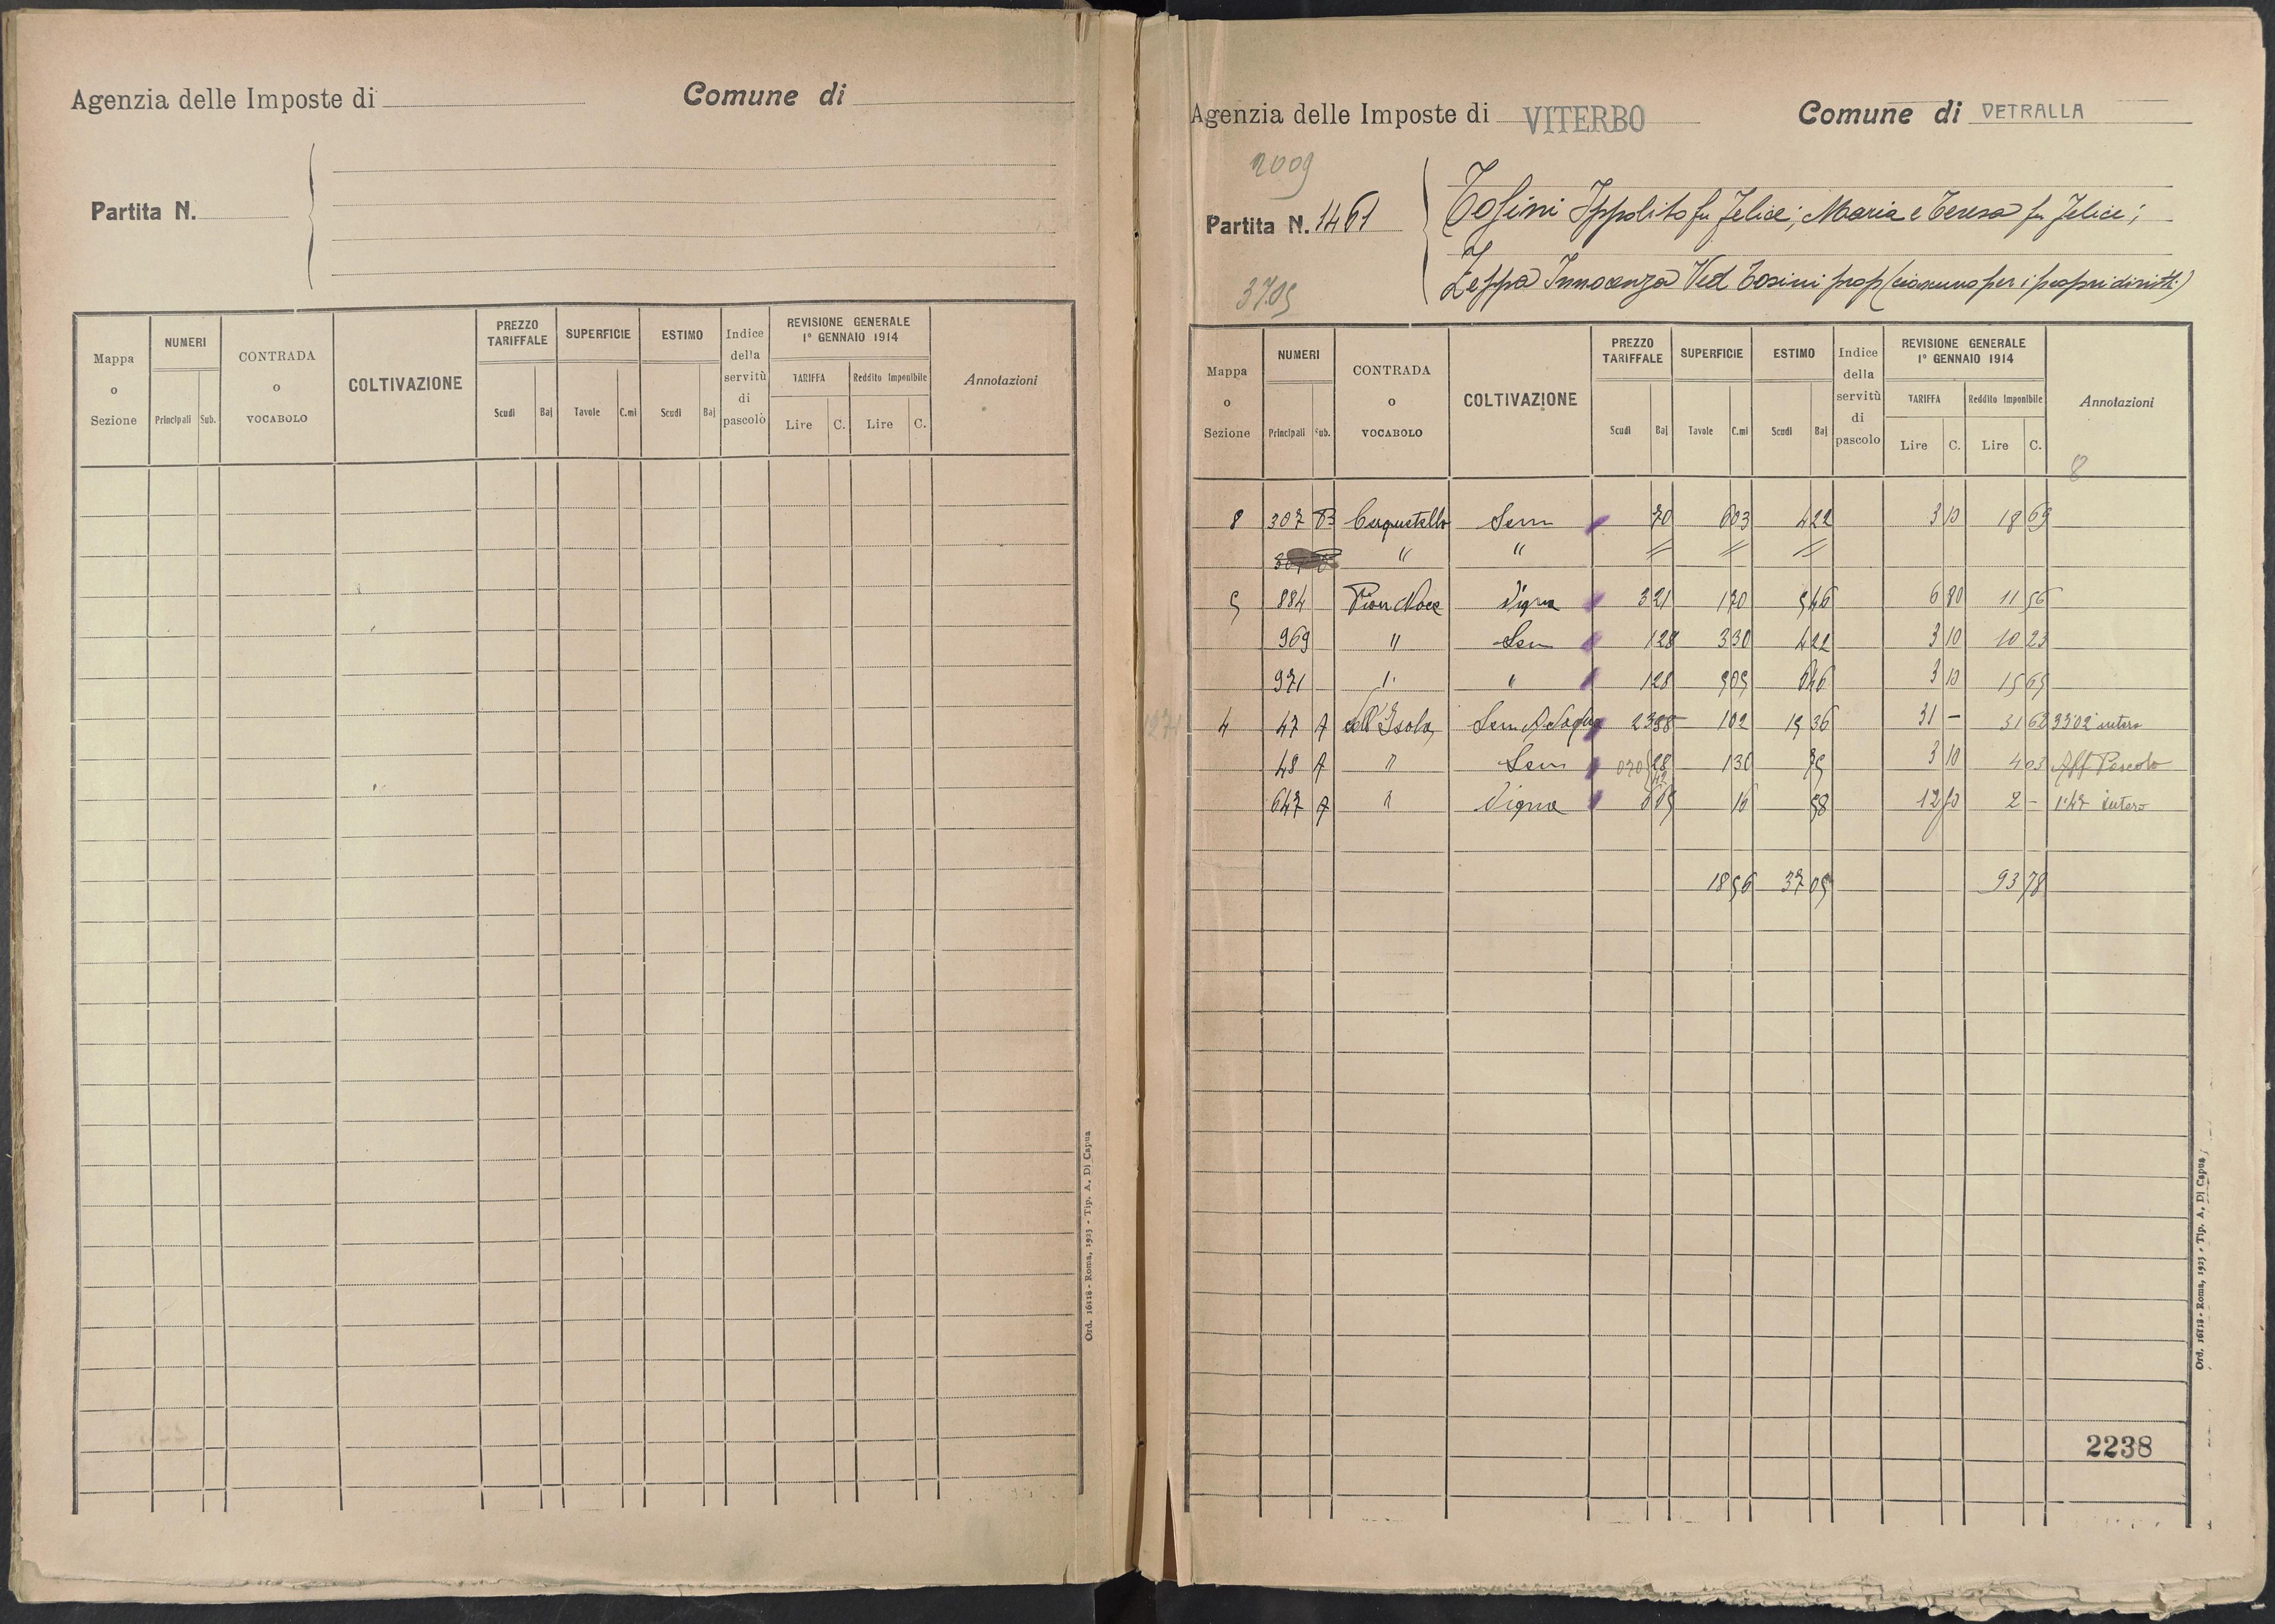 Agenzia delle Imposte di
Comune di
Partita N.
Mappa o Sezione
NUMERI
Principali Sub.
CONTRADA o VOCABOLO
COLTIVAZIONE
PREZZO TARIFFALE
Scudi Baj
SUPERFICIE
Tavole C.mi
ESTIMO
Scudi Baj
Indice della servitù di pascolo
REVISIONE GENERALE
1° GENNAIO 1914
TARIFFA
Lire C.
Reddito Imponibile
Lire C.
Annotazioni
Ord. 16118 - Roma, 1925 - Tip. A. Di Capua
Agenzia delle Imposte di VITERBO
Comune di VETRALLA
2009
Partita N. 1461
3705
Tosini Ippolito fu Felice; Maria e Teresa fu Felice;
Zeppa Innocenza Ved Tosini prop (ciascuno per i propri diritti)
Mappa o Sezione
NUMERI
Principali Sub.
CONTRADA o VOCABOLO
COLTIVAZIONE
PREZZO TARIFFALE
Scudi Baj
SUPERFICIE
Tavole C.mi
ESTIMO
Scudi Baj
Indice della servitù di pascolo
REVISIONE GENERALE
1° GENNAIO 1914
TARIFFA
Lire C.
Reddito Imponibile
Lire C.
Annotazioni
8
8 307 B Cerquetello Sem 70 603 4 22 3 10 18 69
" "
5 884 Pian Noce Vigna 3 21 170 5 46 6 80 11 56
969 " Sem 1 28 330 4 22 3 10 10 23
971 " " 1 28 505 6 46 3 10 15 65
1271 4 47 A dell'Isola Sem 102 15 36 31 - 31 62 33 02 intero
48 A " Sem 070 28 130 3 10 4 03 Aff Pascolo
647 A " Vigna 16 58 2 - 1.47 intero
18 56 37 05 93 78
2238
Ord. 16118 - Roma, 1925 - Tip. A. Di Capua